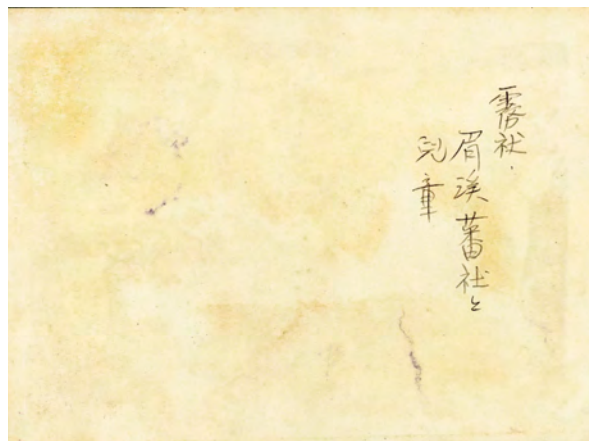 霧社.
眉渓蕃社と
兒童